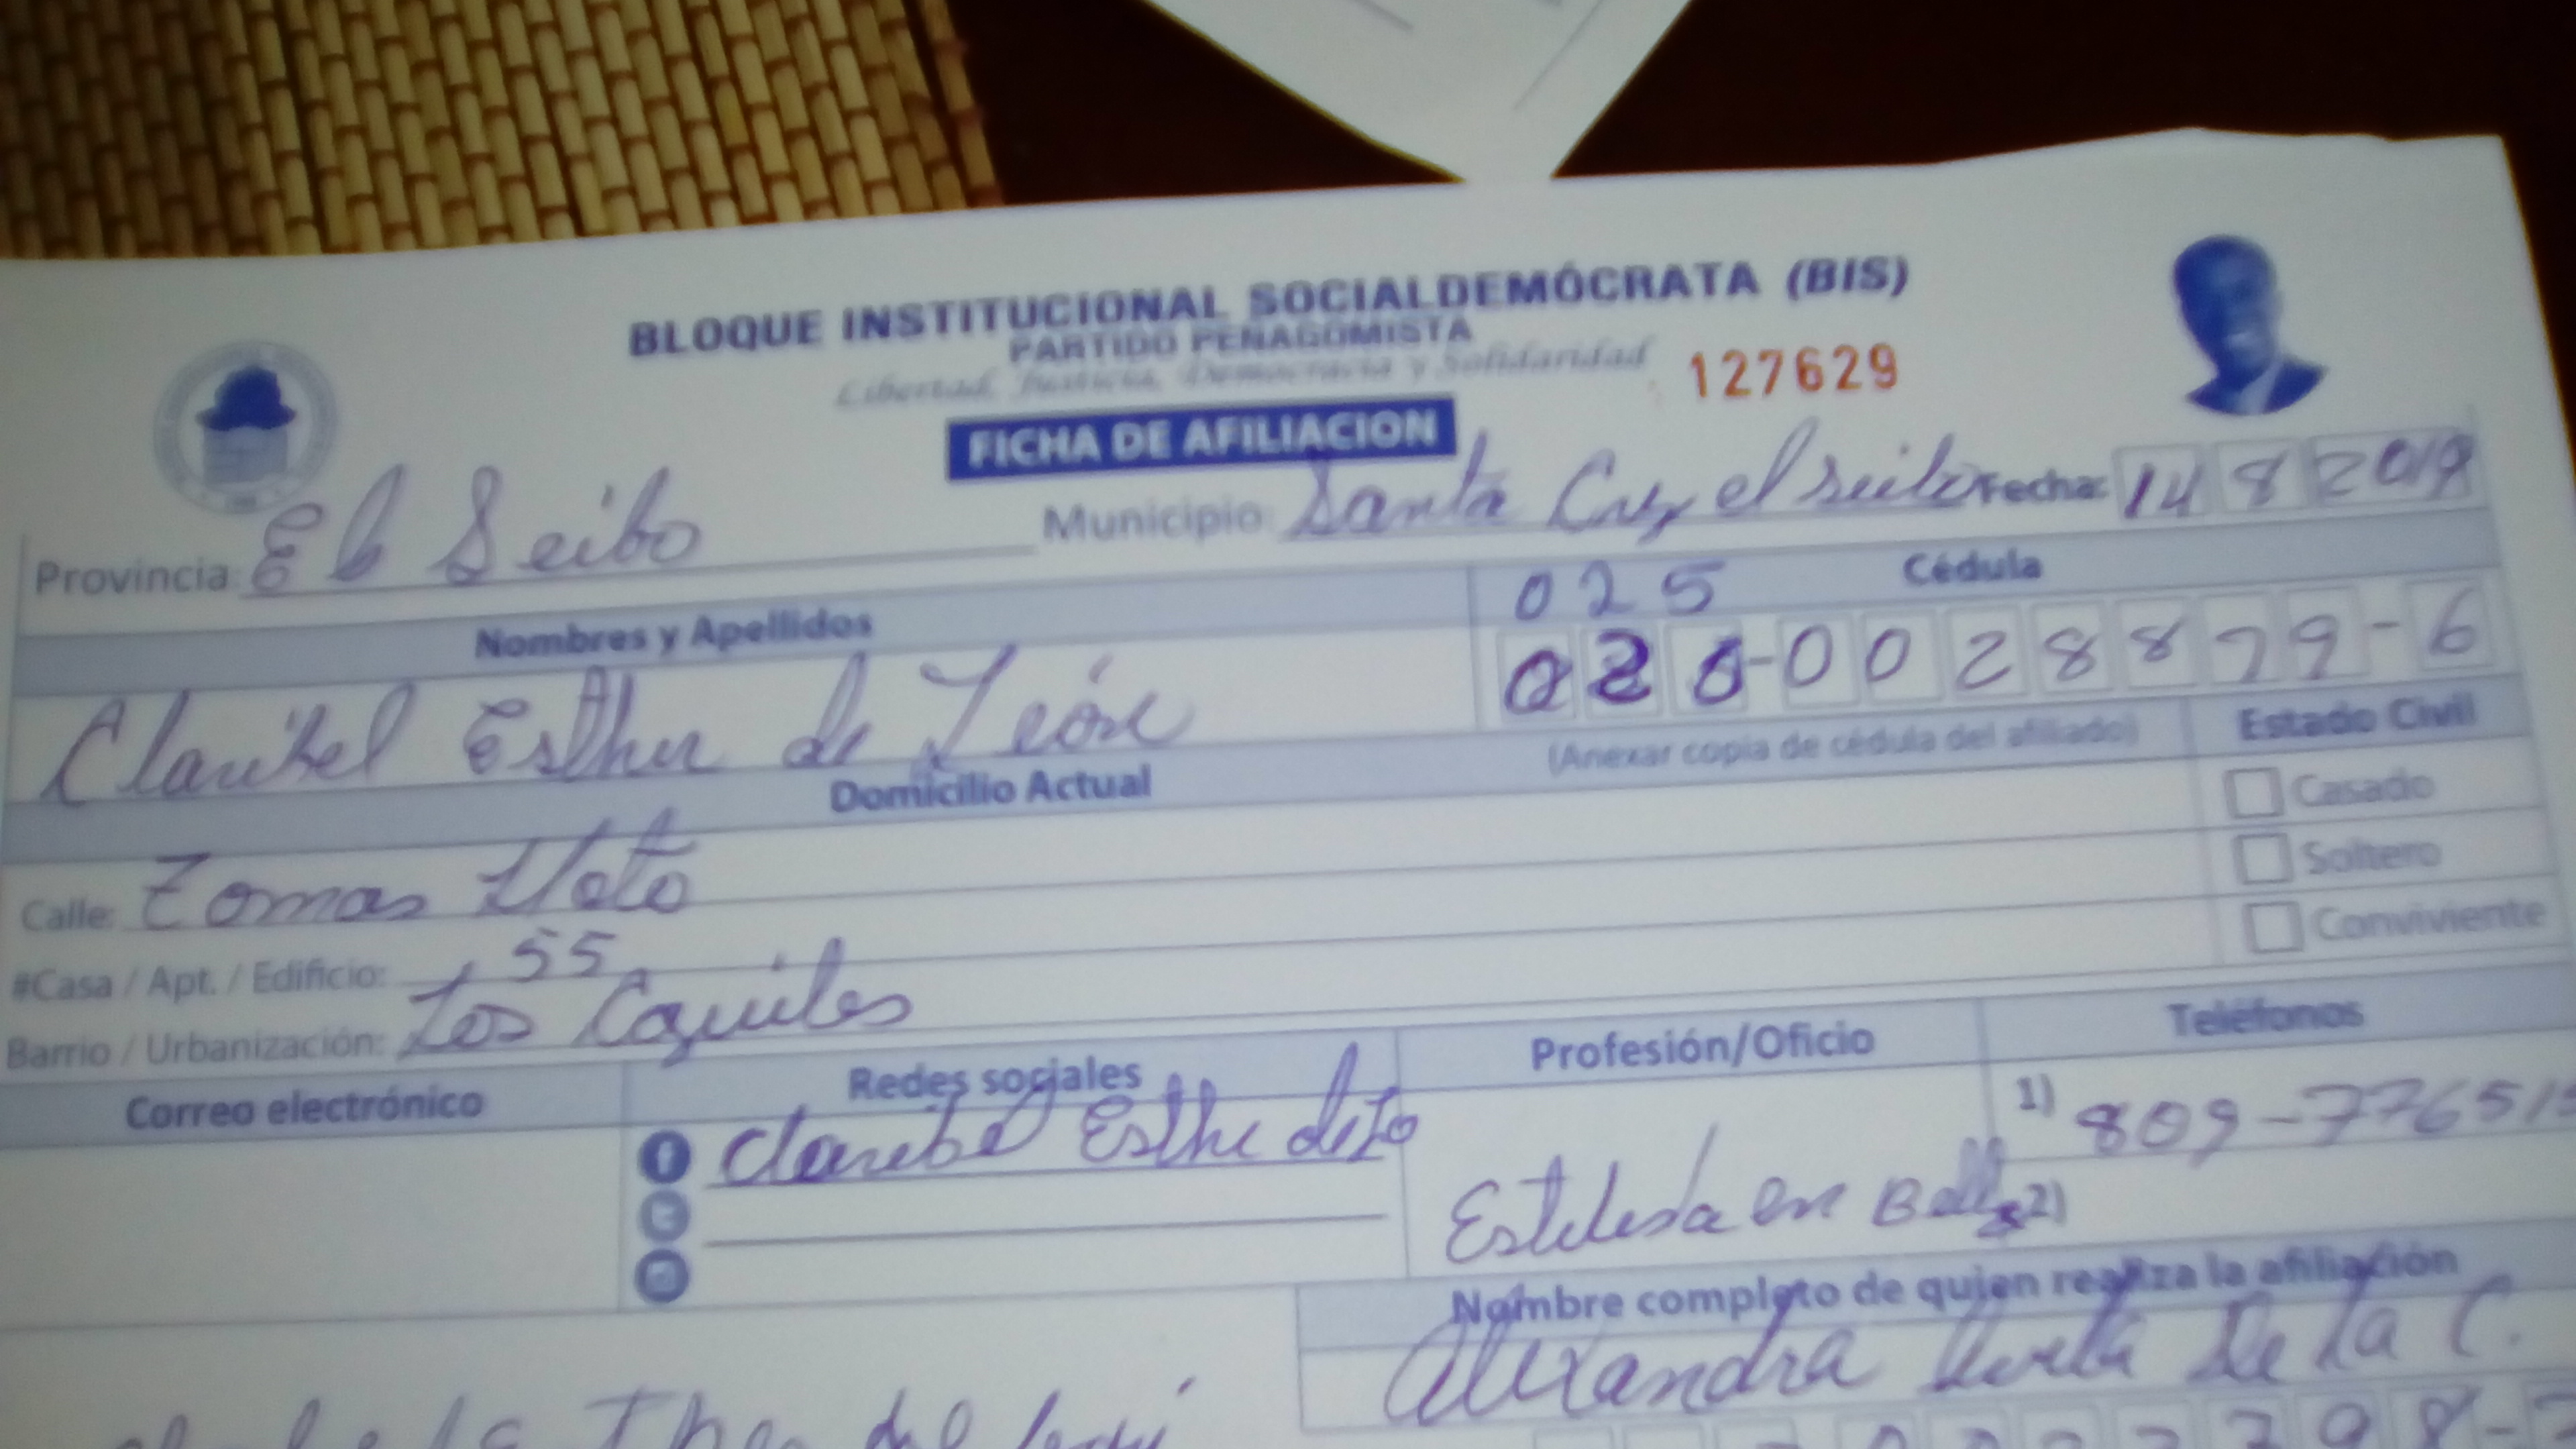 BLOQUE INSTITUCIONAL SOCIALDEMÓCRATA (BIS)
PARTIDO PEÑAGOMISTA
Libertad, Justicia, Democracia y Solidaridad
127629
FICHA DE AFILIACION
Provincia: El Seibo Municipio: Santa Cruz el Seibo Fecha: 14 8 2019
Nombres y Apellidos Cédula
025
020-0028879-6
Claribel Esther de León
(Anexar copia de cédula del afiliado) Estado Civil
Domicilio Actual
Casado
Calle: Tomas
Soltero
#Casa / Apt. / Edificio: 55
Conviviente
Barrio / Urbanización: Los
Correo electrónico Redes sociales Profesión/Oficio Teléfonos
Claribel Esthe de Lo
1) 809-77651
en Bell
2)
Nombre completo de quien realiza la afiliación
Alexandra De La C.